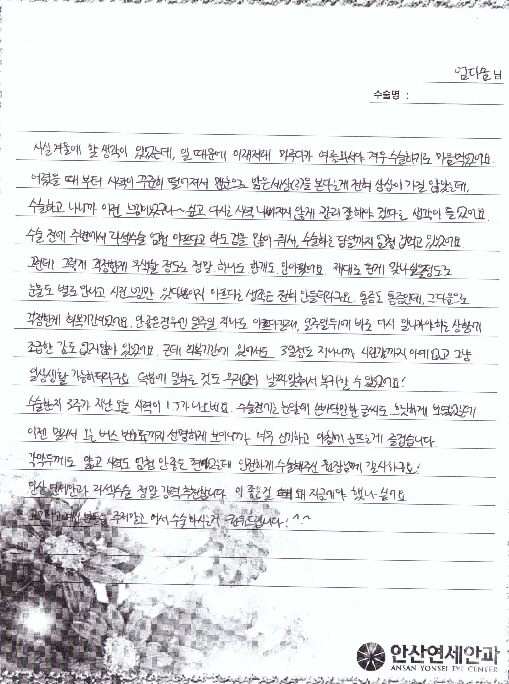 엄다솔 님
수술명 :
사실 겨울에 할 생각이 있었는데, 일 때문에 이래저래 미루다가 여름되서야 겨우 수술하기로 마음먹었어요.
어렸을 때 부터 시력이 꾸준히 떨어져서 맨눈으로 밝은세상(?)을 본다는게 전혀 상상이 가질 않았는데,
수술하고 나니까 이런 느낌이었구나~ 싶고 다시는 시력 나빠지지 않게 관리 잘해야 겠다는 생각이 들었어요.
수술 전에 주변에서 라식수술 엄청 아프다고 하도 겁을 많이 줘서, 수술하는 당일까지 엄청 겁먹고 있었어요.
그런데 그렇게 걱정한게 무색할 정도로 정말 하나도 한개도 안아팠어요. 제대로 된게 맞나 싶을정도로
눈물도 별로 안나고 시린 느낌만 있다뿐이지 아프다는 생각은 전혀 안들더라구요. 통증도 통증인데, 그다음으로
걱정한게 회복기간이었어요. 안좋은경우엔 일주일 지나도 아프다길래, 일주일뒤에 바로 다시 일나가야하는 상황에
조급한 감도 없지않아 있었어요. 근데 회복기간에 있어서도 3일정도 지나니까 시린감까지 아예 없고 그냥
일상생활 가능하더라구요. 덕분에 일하는 것도 무리없이 날짜 맞춰서 복귀할 수 있었어요!
수술한지 3주가 지난 오늘 시력이 1.2가 나오네요. 수술전에는 눈앞에 글씨도 흐릿하게 보였었는데
이젠 멀리서 오는 버스 번호까지 선명하게 보이니까 너무 신기하고 아침에 눈뜨는게 즐겁습니다.
각막두께도 얇고 시력도 엄청 안좋은 편이었는데 안전하게 수술해주신 원장님께 감사하구요!
안산 연세안과 라식수술 정말 강력 추천합니다. 이 좋은걸 왜 지금에야 했나 싶어요.
고민하고 계신 분들은 주저말고 어서 수술하시는거 권유드립니다! ^^
안산연세안과
ANSAN YONSEI EYE CENTER